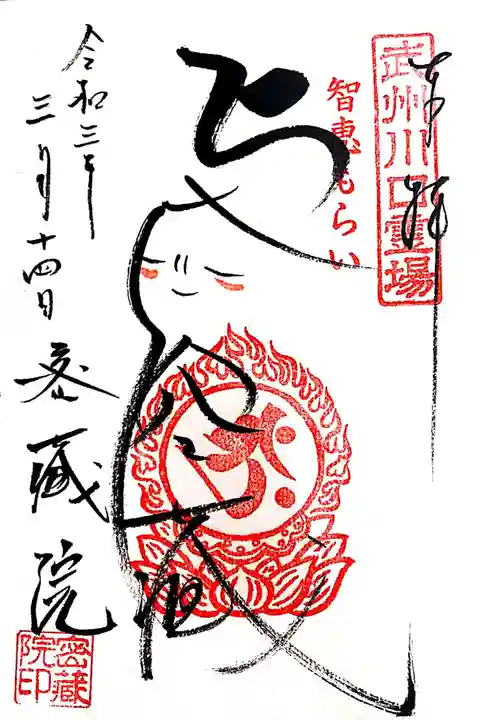 武州川口霊場
奉拝
智恵もらい
虚空蔵
令和三年
三月十四日
密蔵院
密蔵
院印